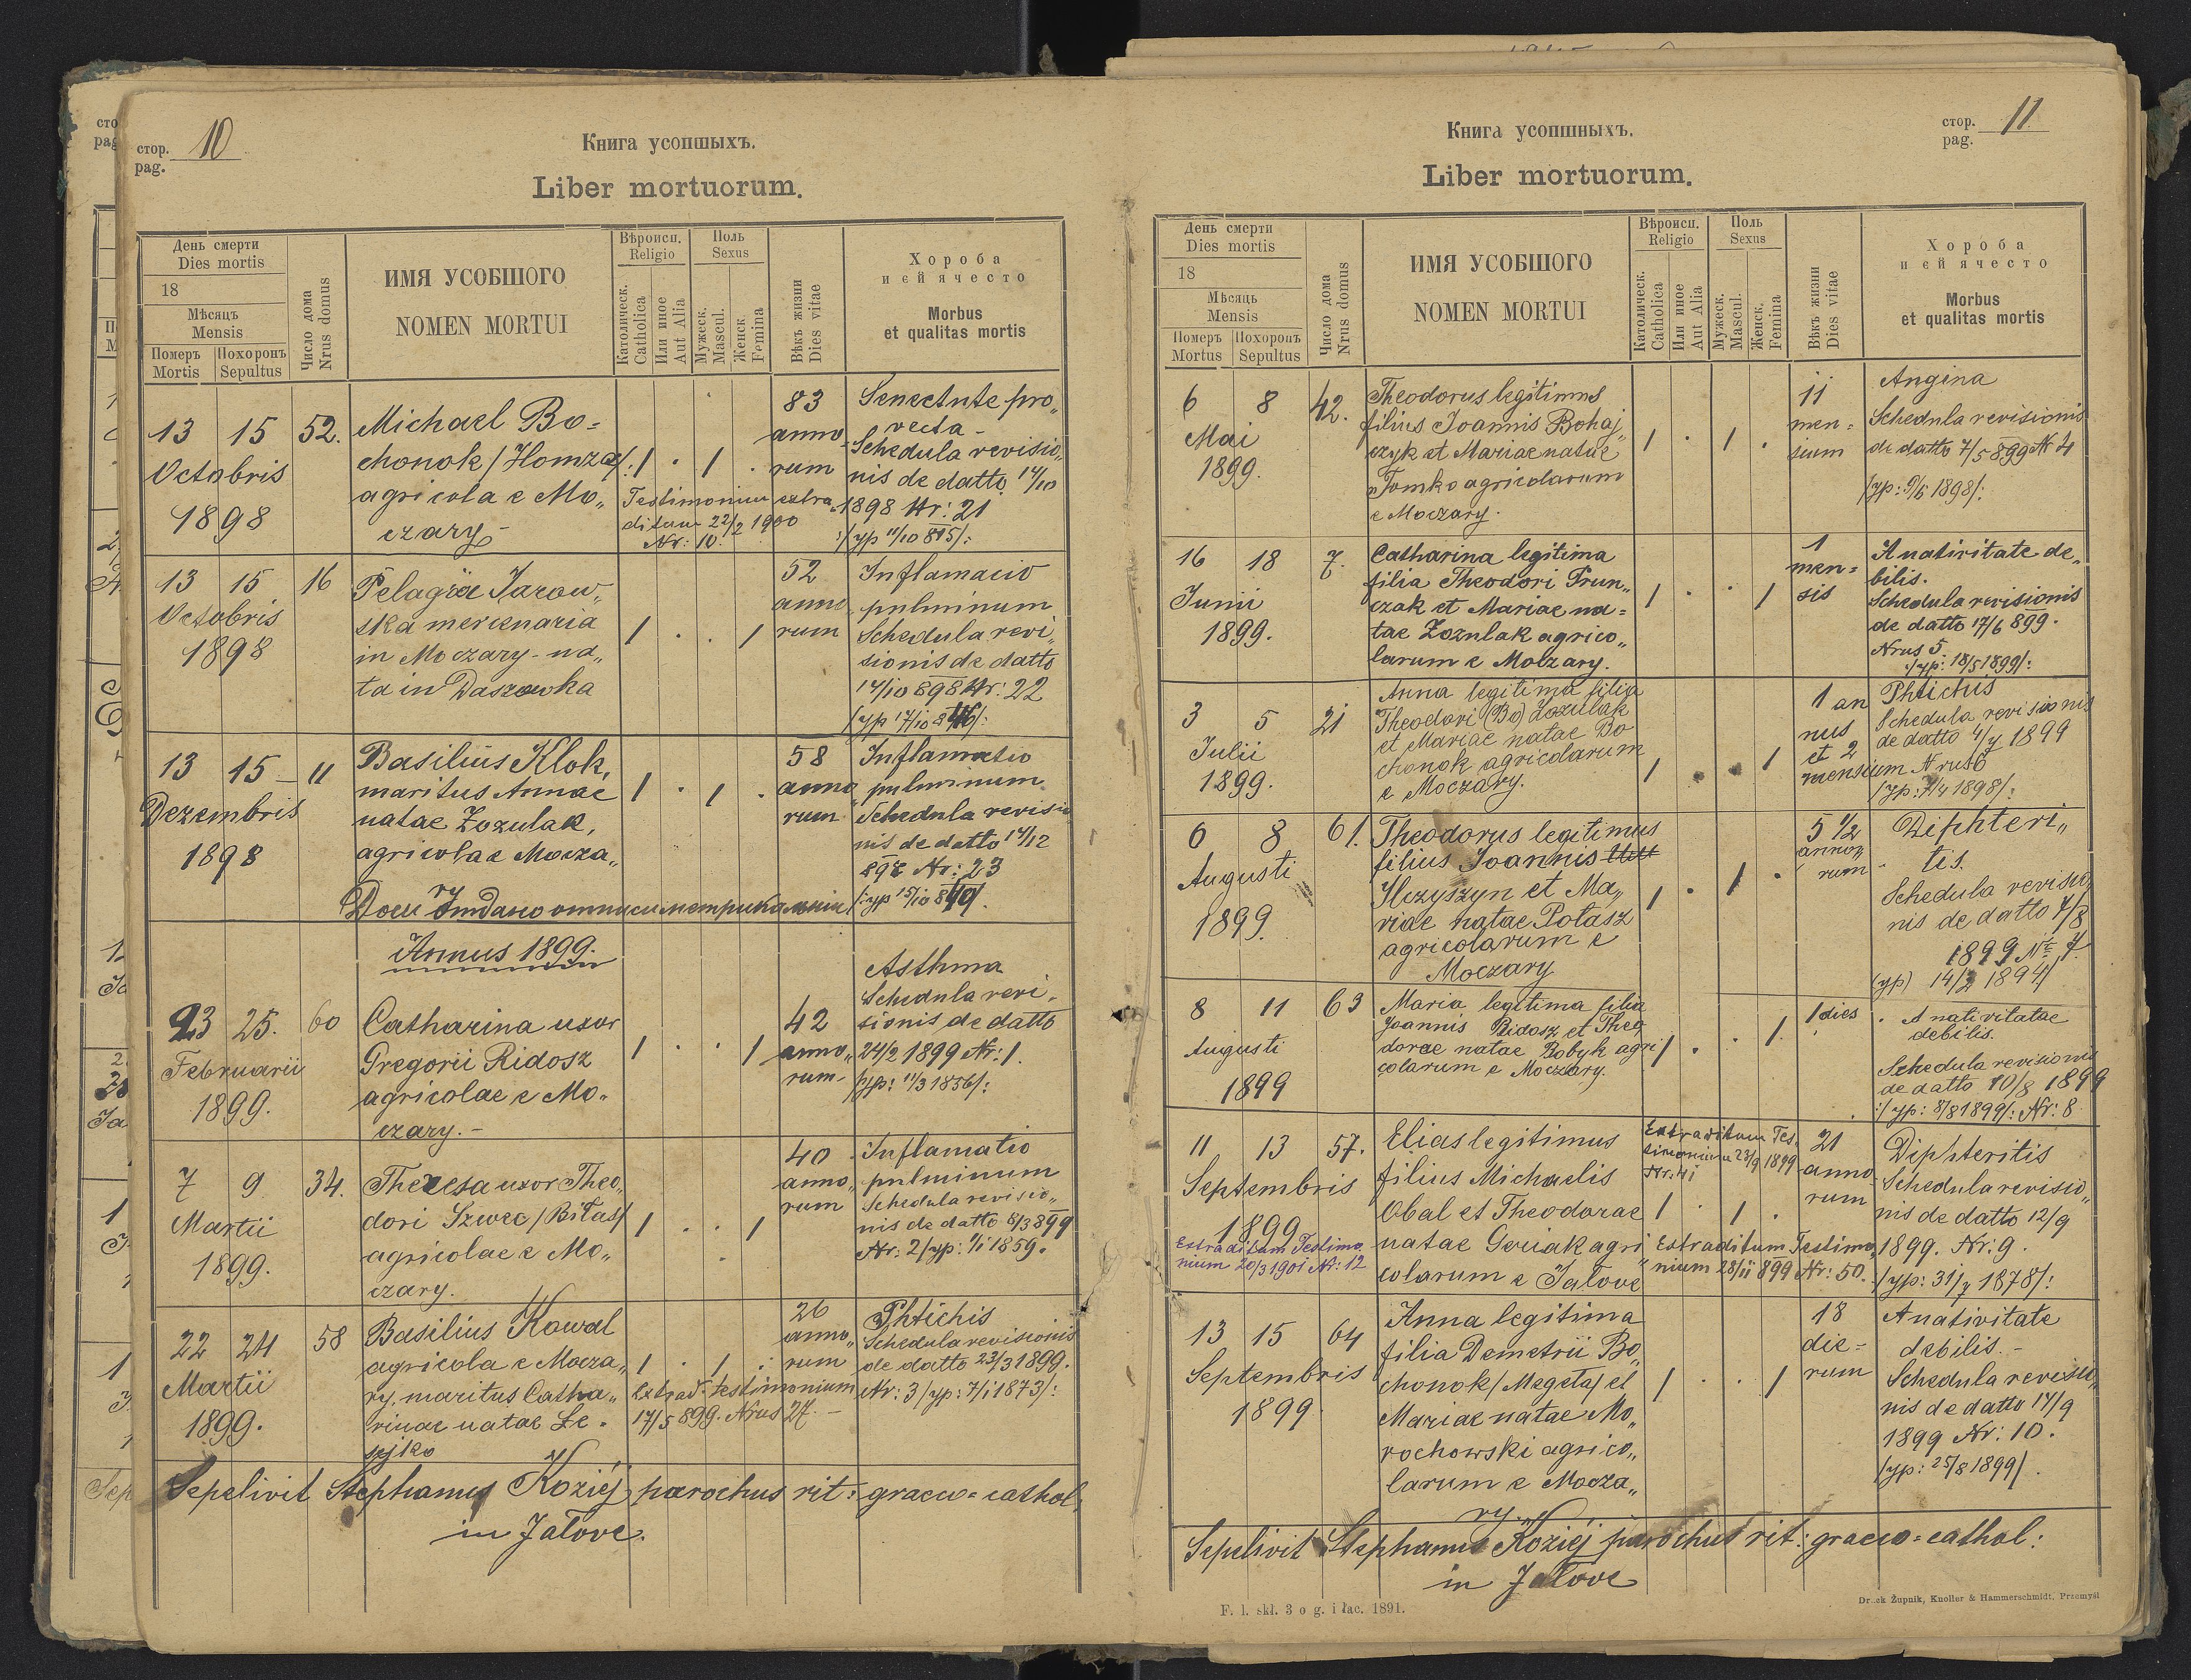 стор. 10
pag.
Книга усопшыхъ.
Liber mortuorum.
День смерти
Dies mortis
18
Мѣсяць
Mensis
Померъ
Mortis
Похоронъ
Sepultus
Число дома
Nrus domus
ИМЯ УСОБШОГО
NOMEN MORTUI
Вѣроисп.
Religio
Католическ.
Catholica
Или иное
Aut Alia
Поль
Sexus
Мужеск.
Mascul.
Женск.
Femina
Вѣкъ жизни
Dies vitae
Хороба
и єй ячесто
Morbus
et qualitas mortis
13 15 52.
Octobris
1898
Michael Bo=
chonok /Homza/:
agricola e Mo„
czary-
1 . 1 .
Testimonium extra„
ditum 22/2 1900
Nr: 10.
83
anno„
rum
Senectute pro„
vecta -
Schedula revisio„
nis de datto 14/10
1898 Nr: 21
:/yp 11/10 815/:
13 15 16
Octobris
1898
Pelagia Jarow„
ska mercenaria
in Moczary - na„
ta in Daszowka
1 . . 1
52
anno
rum
Inflamacio
pulminum
Schedula revi„
sionis de datto
14/10 898 Nr: 22
13 15 - 11
Dezembris
1898
Basilius Klok,
maritus Annae
natae Zozulak,
agricola e Mocza„
ry
1 . 1 .
58
anno„
rum
Inflamatio
pulminum
Schedula revisio
nis de datto 14/12
898 Nr: 23
Annus 1899.
23 25. 60
Februarii
1899.
Catharina uxor
Gregorii Ridosz
agricolae e Mo„
czary. -
1 . . 1
42
anno„
rum-
Asthma
Schedula revi„
sionis de datto
24/2 1899 Nr: 1.
/yp: 11/3 1856/:
7 9 34.
Martii
1899.
Theresa uxor Theo„
dori Szwec /Biłas/
agricolae e Mo„
czary.
1 . . 1
40
anno„
rum
Inflamatio
pulminum
Schedula revisio„
nis de datto 8/3 899
Nr: 2 /yp: 1/1 1859.
22 24 58
Martii
1899.
Basilius Kowal
agricola e Mocza„
ry, maritus Catha„
rinae natae Le„
sejko
1 . 1 .
Extrad. testimonium
17/5 899. Nrus 27. -
26
anno„
rum
Phtichis
Schedula revisionis
de datto 23/3 1899.
Nr: 3 /yp: 7/1 1873/:
Sepelivit Stephanus Koziej parochus rit: graeco=cathol:
in Jałove.
стор. 11
pag.
Книга усопшныхъ.
Liber mortuorum.
День смерти
Dies mortis
18
Мѣсяць
Mensis
Померъ
Mortus
Похоронъ
Sepultus
Число дома
Nrus domus
ИМЯ УСОБШОГО
NOMEN MORTUI
Вѣроисп.
Religio
Католическ.
Catholica
Или иное
Aut Alia
Поль
Sexus
Мужеск.
Mascul.
Женск.
Femina
Вѣкъ жизни
Dies vitae
Хороба
и єй ячесто
Morbus
et qualitas mortis
6 8 42.
Mai
1899.
Theodorus legitimus
filius Joannis Bohaj„
czyk et Mariae natae
Tomko agricolarum
e Moczary.
1 . 1 .
11
men=
sium
Angina
Schedula revisionis
de datto 7/5 899 Nr 4
/yp: 9/6 1898/:
16 18 7.
Junii
1899.
Catharina legitima
filia Theodori Prun„
czak et Mariae na=
tae Zozulak agrico„
larum e Moczary.
1 . . 1
1
men=
sis
A nativitate de„
bilis.
Schedula revisionis
de datto 17/6 899.
Nrus 5
:/yp: 18/5 1899/:
3 5 21
Julii
1899.
Anna legitima filia
Theodori (Bo) Zozulak
et Mariae natae Bo
chonok agricolarum
e Moczary.
1 . . 1
1 an
nus
et 2
mensium
Phtichis
Schedula revisionis
de datto 4/7 1899
Nrus 6
6 8 61.
Augusti
1899.
Theodorus legitimus
filius Joannis
Ilczyszyn et Ma„
riae natae Potasz
agricolarum e
Moczary
1 . 1 .
5 1/2
anno„
rum
Diphteri„
tis.
Schedula revisio„
nis de datto 7/8
1899 Nr 7.
(yp) 14/2 1894/
8 11 63
Augusti
1899
Maria legitima filia
Joannis Ridosz et Theo
dorae natae Bobyk agri
colarum e Moczary.
1 . . 1.
1 dies
A nativitatae
debilis.
Schedula revisionis
de datto 10/8 1899
:/yp: 8/8 1899/: Nr: 8
11 13 57.
Septembris
1899
Extraditum Testimo„
nium 20/3 1901 Nr: 12
Elias legitimus
filius Michaelis
Obal et Theodorae
natae Goriak agri„
colarum e Jałove
Extraditum Tes„
timonium 23/9 1899
Nr: 41
1 . 1 .
Extraditum Testimo„
nium 28/11 899 Nr: 50.
21
anno
rum
Diphteritis
Schedula revisio„
nis de datto 12/9
1899. Nr: 9.
/yp: 31/7 1878/:
13 15 64
Septembris
1899
Anna legitima
filia Demetrii Bo„
chonok /Megeta/ et
Mariae natae Mo„
rochowski agrico„
larum e Mocza„
ry.
1 . . 1
18
die=
rum
A nativitate
debilis. -
Schedula revisio„
nis de datto 14/9
1899 Nr: 10.
/yp: 25/8 1899/.
Sepelivit Stephanus Koziej parochus rit: graeco=cathol:
in Jałove
F. l. skł. 3 o g. i łac. 1891.
Druck Żupnik, Knoller & Hammerschmidt, Przemyśl